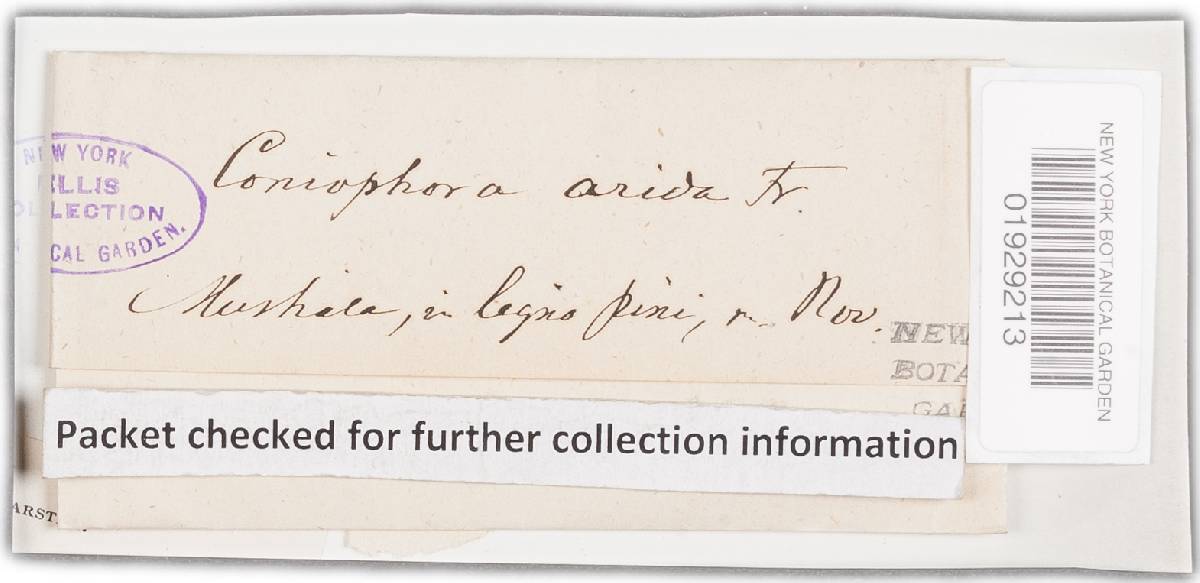 NEW YORK
ELLIS
OLLECTION
CAL GARDEN.
Coniophora arida Fr.
Mustiala, in ligno pini, m. Nov.
NEW
BOTA
GAR
Packet checked for further collection information
ARST
NEW YORK BOTANICAL GARDEN
01929213